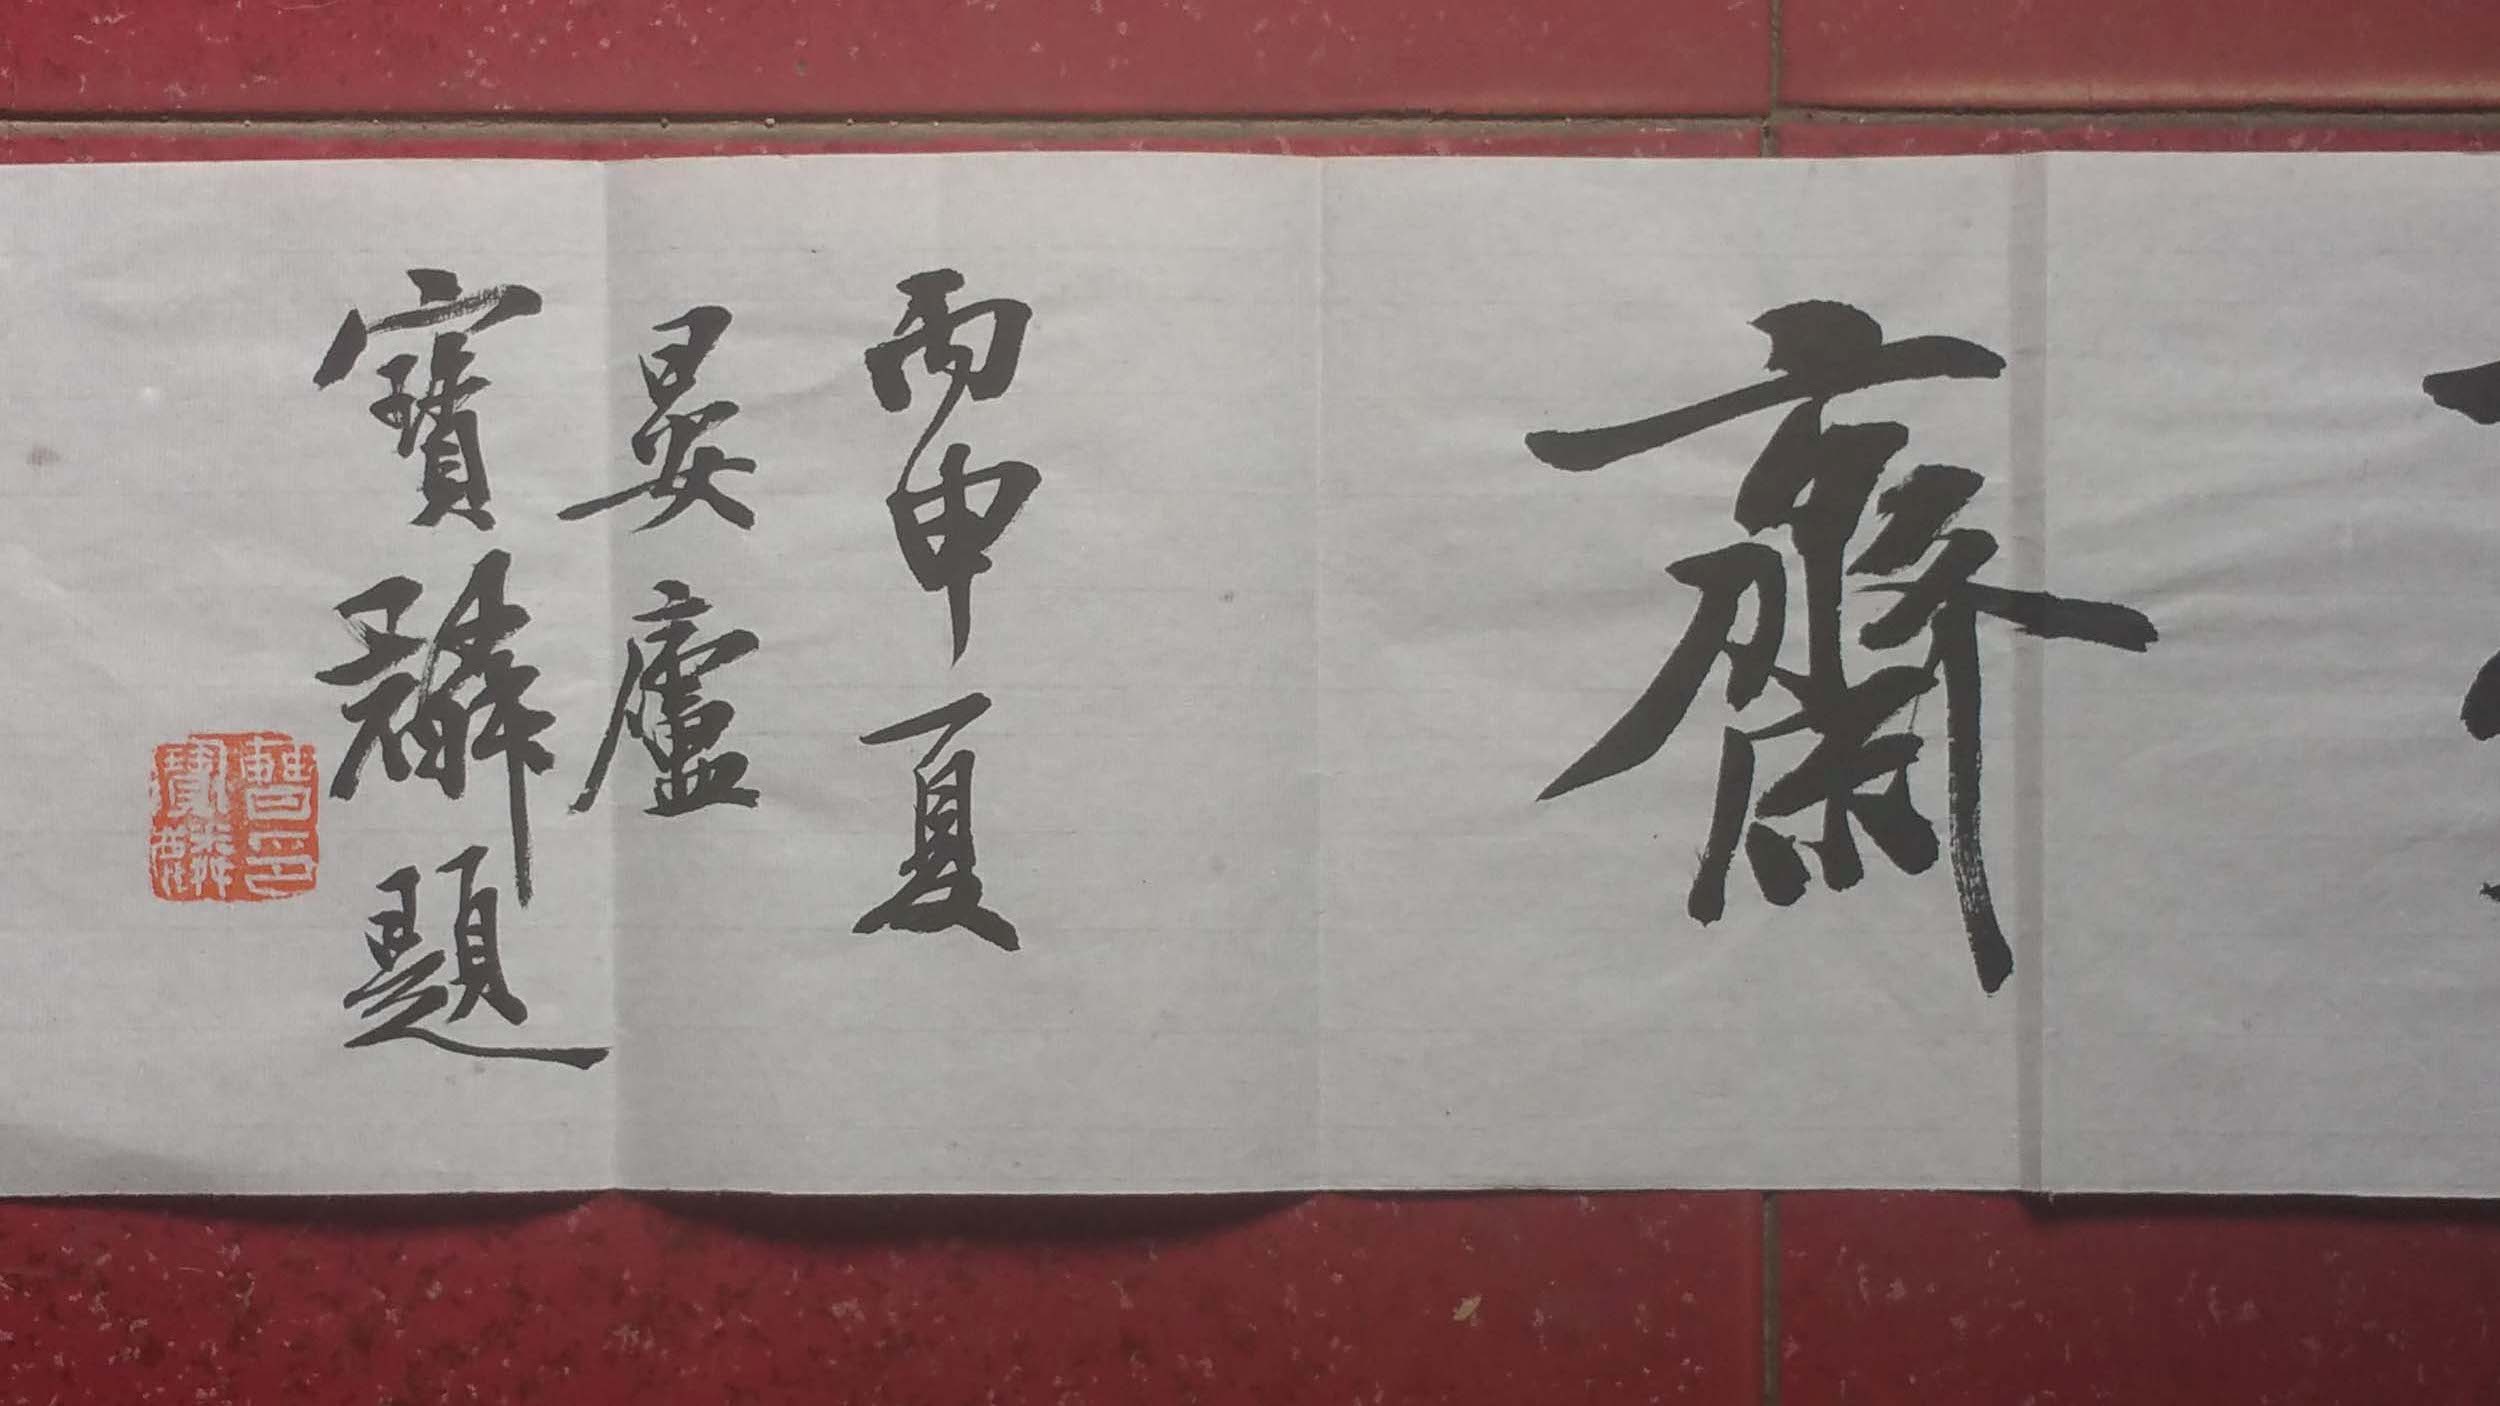 齋
丙申夏
晏廬
寶麟題
曹印
寶麟